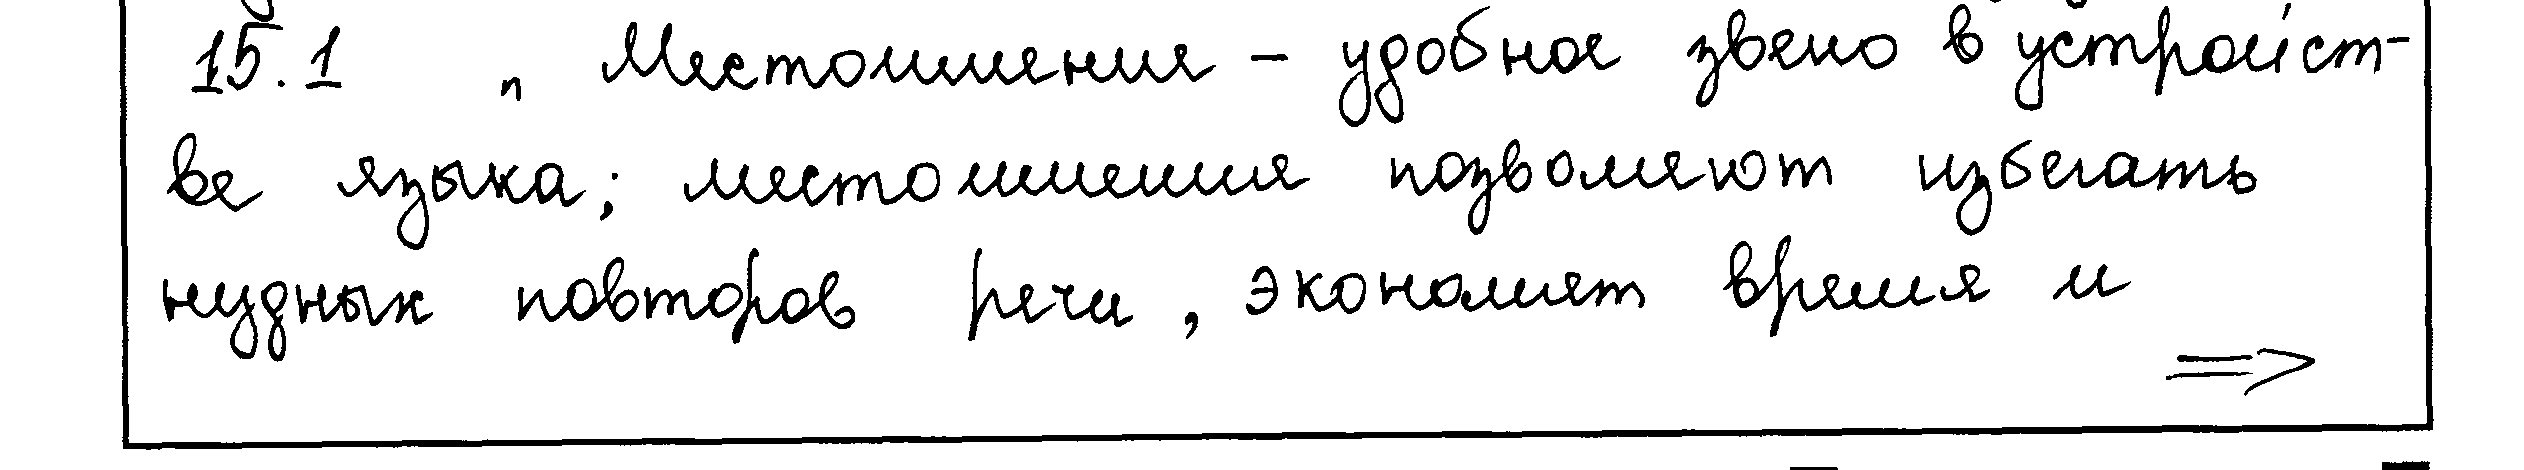 15.1 „Местоимения – удобное звено в устройст-
ве языка; местоимения позволяют избегать
нудных повторов речи, экономят время и
⇒